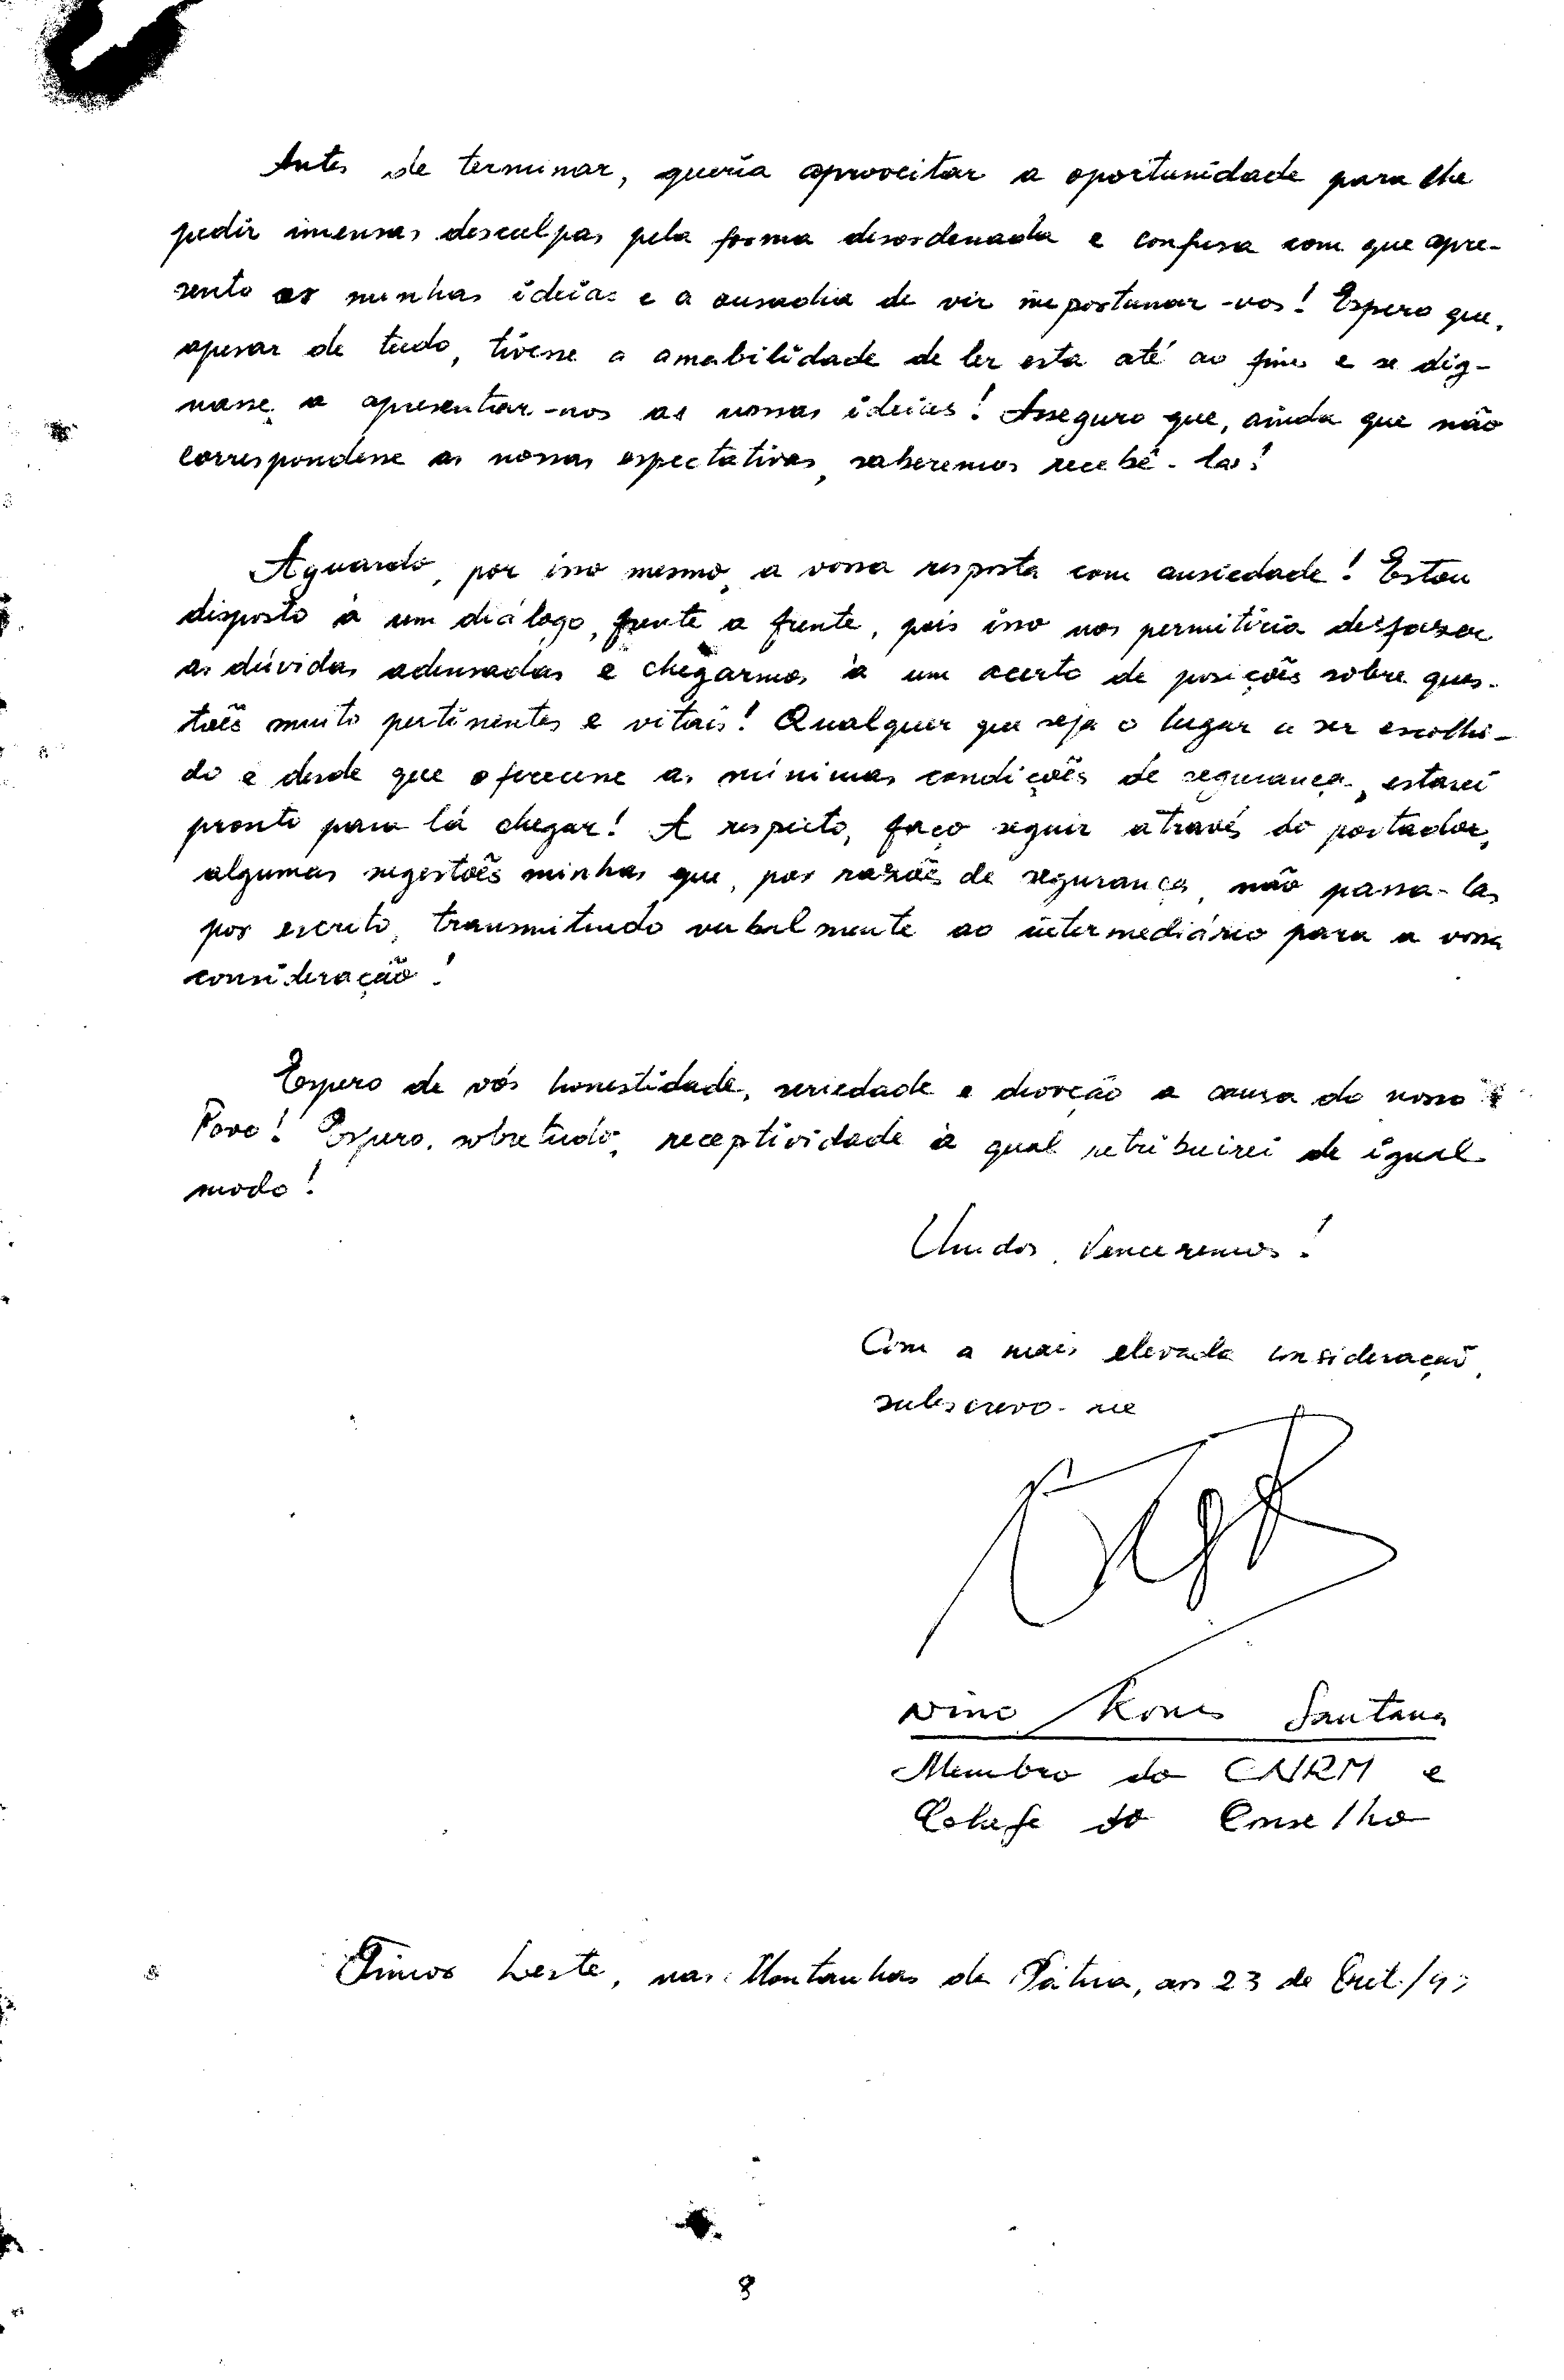 Antes de terminar, queria aproveitar a oportunidade para lhe
pedir imensas desculpas pela forma desordenada e confusa com que apre-
sento as minhas ideias e a ousadia de vir importunar-vos! Espero que,
apesar de tudo, tivesse a amabilidade de ler esta até ao fim e se dig-
nasse, a apresentar-nos as vossas ideias! Asseguro que, ainda que não
correspondesse as nossas espectativas, saberemos recebê-las!
Aguardo, por isso mesmo, a vossa resposta com ansiedade! Estou
disposto à um diálogo, frente a frente, pois isso nos permitiria desfazer
as dúvidas adensadas e chegarmos à um acerto de posições sobre ques-
tões muito pertinentes e vitais! Qualquer que seja o lugar a ser escolhi-
do e desde que oferecesse as mínimas condições de segurança, estarei
pronto para lá chegar! A respeito, faço seguir através do portador,
algumas sugestões minhas que, por razões de segurança, não passa-las
por escrito, transmitindo verbalmente ao intermediário para a vossa
consideração!
Espero de vós honestidade, seriedade e devoção a causa do nosso
Povo! Espero, sobretudo, receptividade à qual retribuirei de igual
modo!
Unidos, Venceremos!
Com a mais elevada consideração,
subscrevo-me
Nino Konis Santana
Membro do CNRM e
Cohefe do Conselho
Timor Leste, nas Montanhas da Pátria, aos 23 de Out./
8